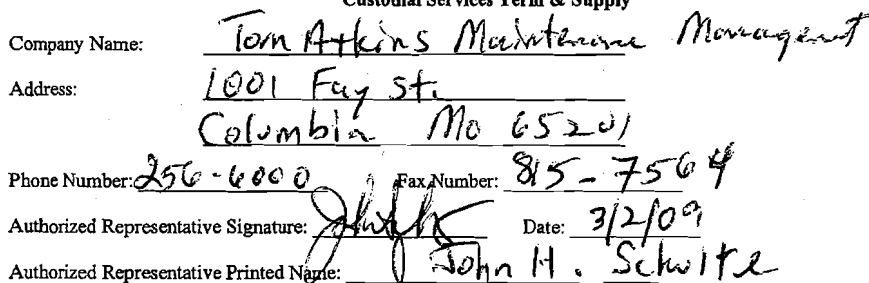 Custodial Services Term & Supply
Company Name: Tom Atkins Maintenance Management
Address: 1001 Fay St.
Columbia Mo 65201
Phone Number: 256-4000 Fax Number: 815-7564
Authorized Representative Signature: Date: 3/2/09
Authorized Representative Printed Name: John H. Schulte